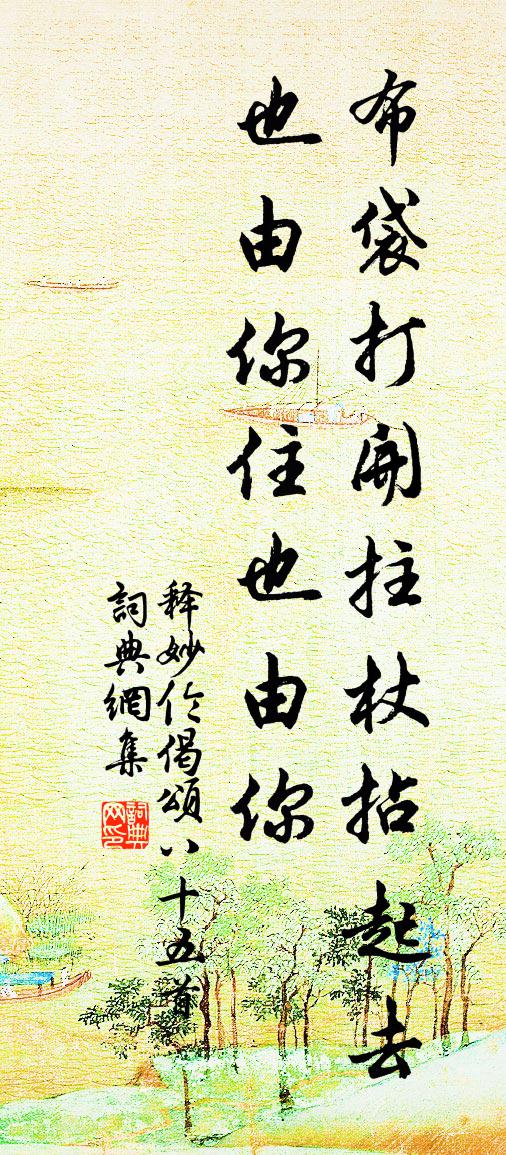 布袋打開拄杖拈起去
也由你住也由你
释妙伦偈頌八十五首
詞典網集
詞典
网印